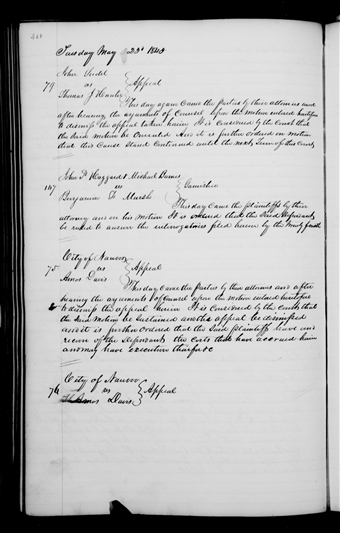 Tuesday May 23d 1843
John Scidel
79 vs } Appeal
Thomas J Hunter
This day again Came the parties by their attornies and
after hearing the arguments of Counsel upon the motion entered heretofore
to dismiss the appeal taken herein It is Considered by the Court that
the said motion be overruled And it is further ordered on motion
that this Cause Stand Continued until the next Term of this Court
John D Haggard & Michael Barnes
107 vs } Garnishee
Benjamin F Marsh
This day Came the plaintiffs by their
attorney and on his motion It is ordered that the Said Defendant
be ruled to answer the interrogatories filed herein by the
City of Nauvoo
75 vs } Appeal
Amos Davis
This day Came the parties by their attornies and after
hearing the arguments of Counsel upon the motion entered heretofore
to dismiss the appeal herein It is Considered by the Court that
the Said Motion be Sustained and the appeal be dismissed
and it is further ordered that the Said plaintiffs have and
recover of the defendants the Costs that have accrued herein
and may have Execution therefor &c
City of Nauvoo
76 vs } Appeal
Amos Davis